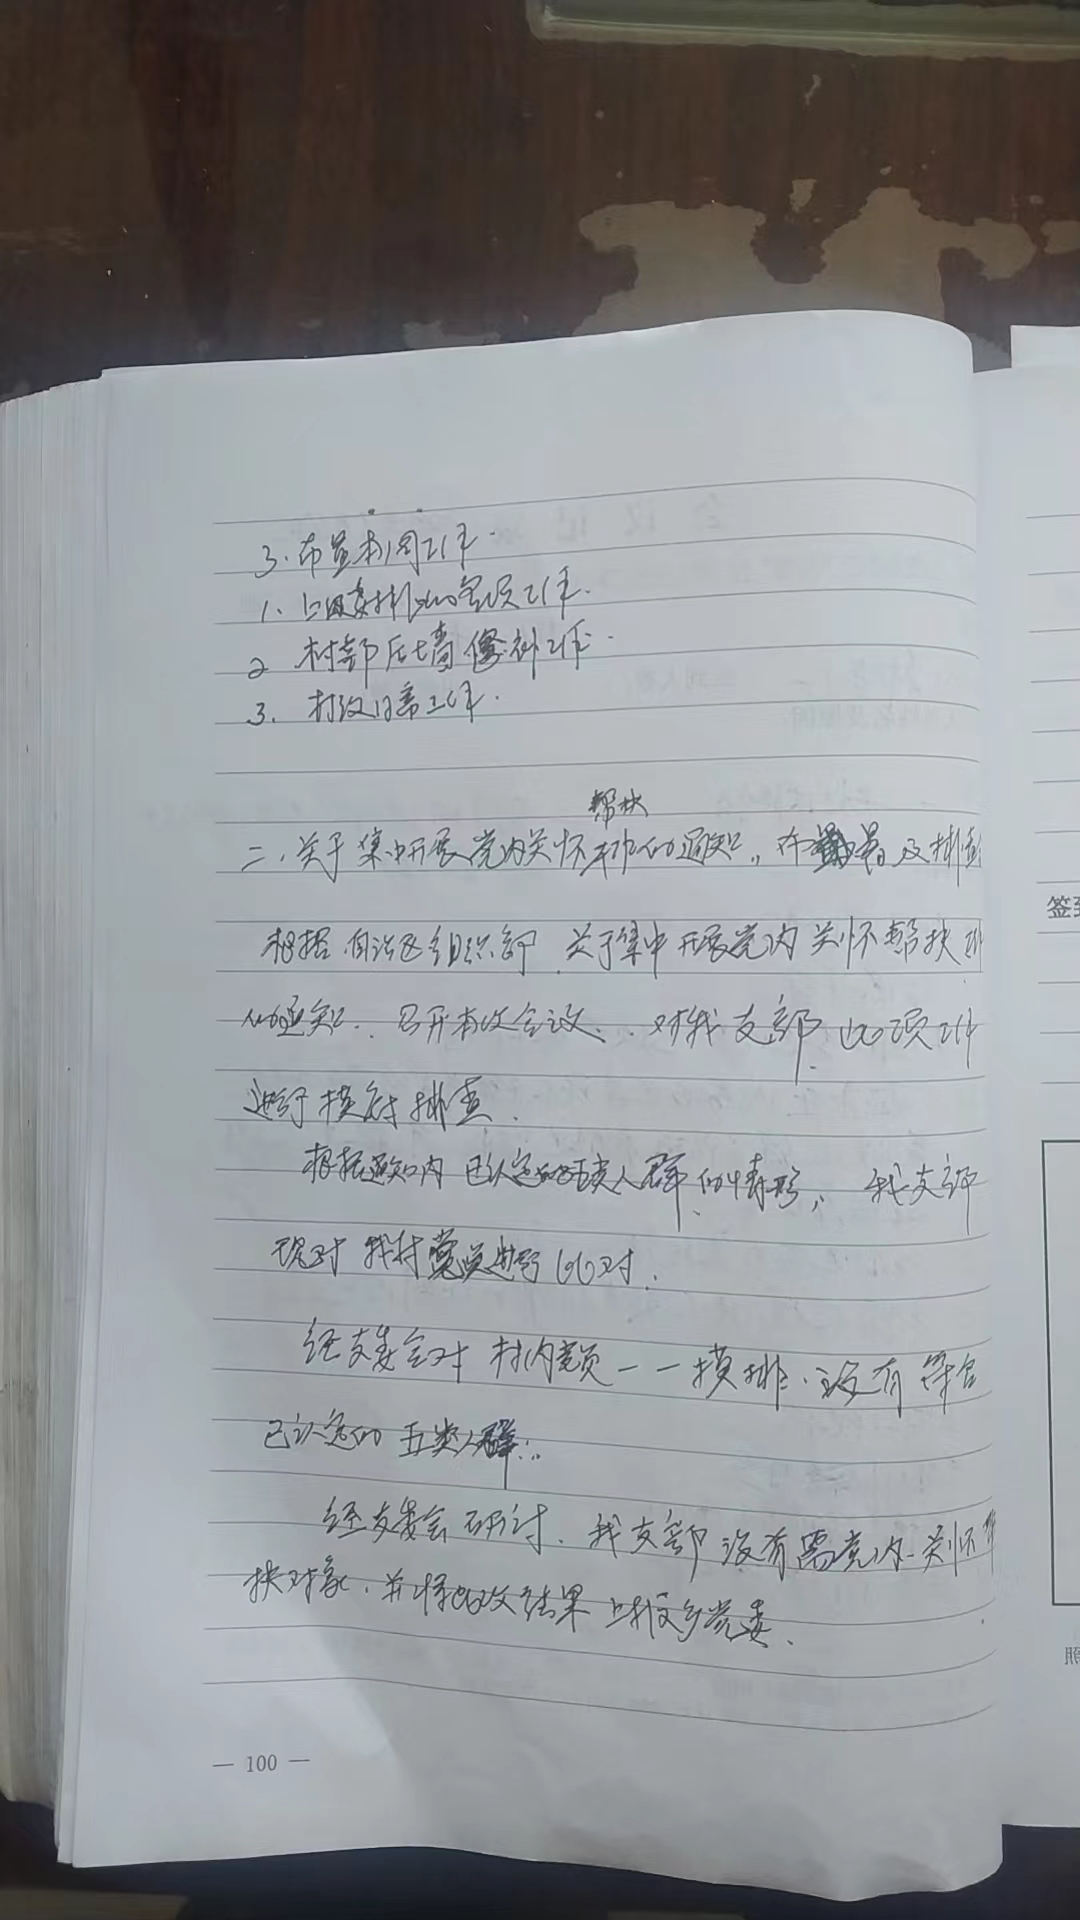 3、布置本周工作.
1、上级安排的各项工作.
2 村部后墙修补工作.
3. 村级日常工作.
帮扶
二、关于集中开展党内关怀工作的通知, 及排查
根据自治区组织部 关于集中开展党内关怀帮扶
的通知. 召开本次会议. 对我支部此项工作
进行摸底排查.
根据通知内已认定的五类人群的情形, 我支部
现对我村党员进行比对.
经支委会对村内党员一一摸排. 没有符合
已认定的五类人群.
经支委会研讨. 我支部没有需党内关怀
扶对象. 并将此次结果上报乡党委.
— 100 —
签到